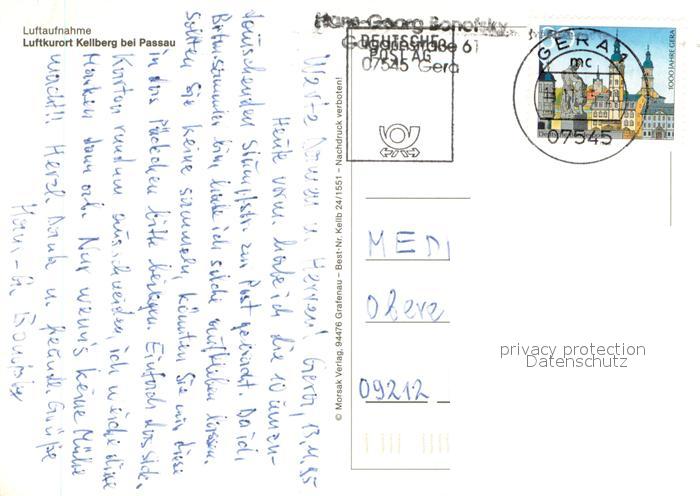 Luftaufnahme
Luftkurort Kellberg bei Passau
Werte Damen u. Herren! Gera, 13.11.95
Heute vorm. habe ich die
zur Post gebracht. Da ich
bin, habe ich solche aufkleben lassen.
Sollten Sie keine sammeln, könnten Sie mir diese
in das Päckchen bitte beilegen. Einfach das
Karton rundum ausschneiden, ich weiche diese
Marken dann ab. Nur wenn's keine Mühe
macht!! Herzl. Dank u. freundl. Grüße
Hans-G. Bonofsky
© Morsak Verlag, 94476 Grafenau – Best-Nr. Kellb 24/1551 – Nachdruck verboten!
Hans-Georg Bonofsky
07545 Gera
DEUTSCHE
POST AG
GERA 1
mc
07545
1000 JAHRE GERA
MEDI
Obere
09212
privacy protection
Datenschutz